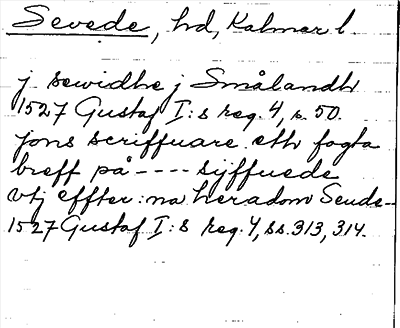 Sevede, hd, Kalmar l.
j sewidhe j Smålandh
1527 Gustaf I:s reg. 4, s. 50.
jons scriffuare eth fogta
breff på ---- syffuede
vtj effter: na heradom Seude--
1527 Gustaf I:s reg. 4, ss. 313, 314.